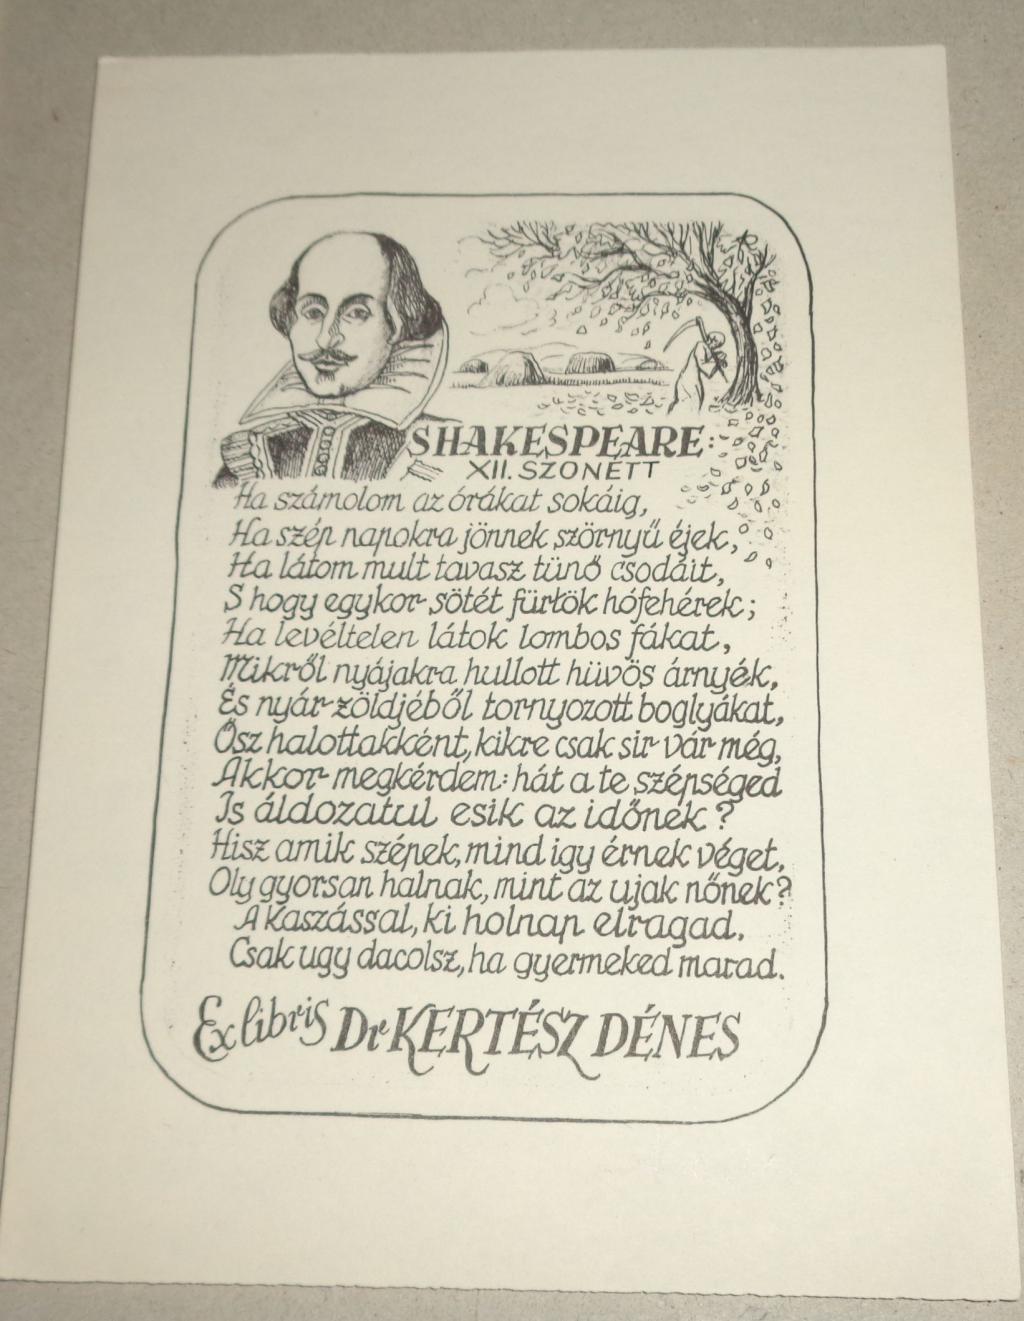 SHAKESPEARE:
XII. SZONETT
Ha számolom az órákat sokáig,
Ha szép napokra jönnek szörnyű éjek,
Ha látom mult tavasz tünő csodáit,
S hogy egykor sötét fürtök hófehérek;
Ha levéltelen látok lombos fákat,
Mikről nyájakra hullott hüvös árnyék,
És nyár zöldjéből tornyozott boglyákat,
Ősz halottakként, kikre csak sir vár még,
Akkor megkérdem: hát a te szépséged
Is áldozatul esik az időnek?
Hisz amik szépek, mind igy érnek véget,
Oly gyorsan halnak, mint az ujak nőnek?
A Kaszással, ki holnap elragad,
Csak ugy dacolsz, ha gyermeked marad.
Ex libris Dr KERTÉSZ DÉNES